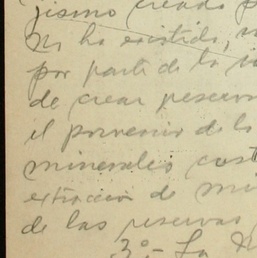 jismo creado p
Ni ha existido, n
por parte de la in
de crear reserva
el porvenir de la
minerales cost
extracción de mi
de las reservas
3º- La R